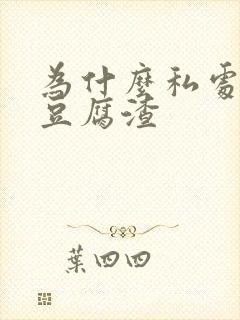 為什麼私處
豆腐渣
葉四四